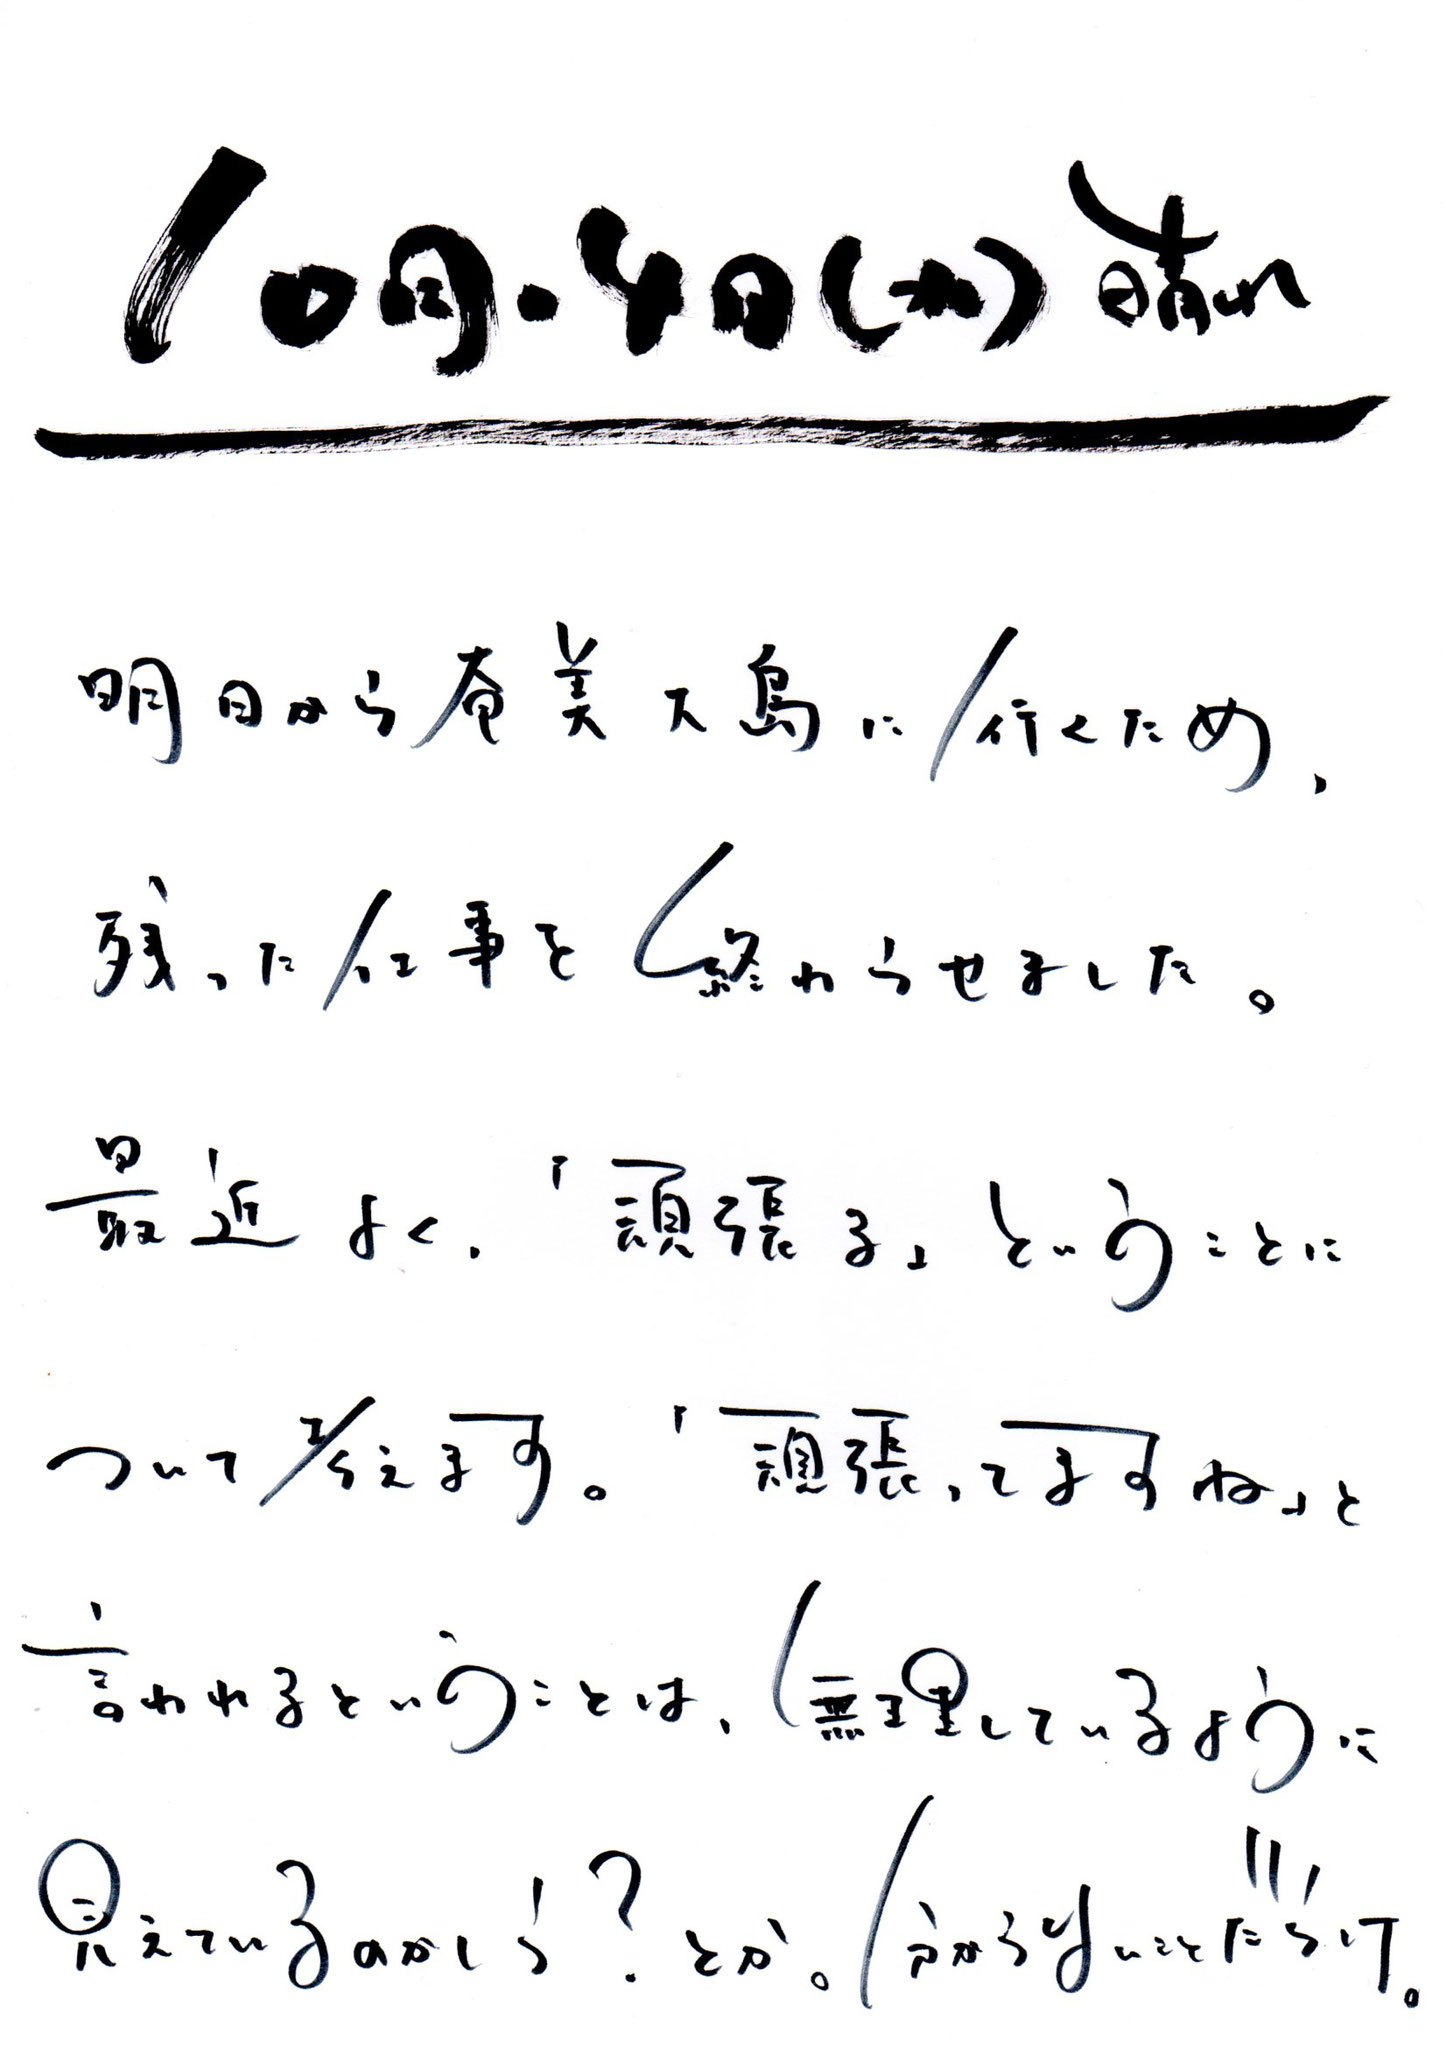 10月.4日(火)晴れ
明日から奄美大島に行くため、
残った仕事を終わらせました。
最近よく、「頑張る」ということに
ついて考えます。「頑張ってますね」と
言われるということは、無理しているように
見えているのかしら?とか。分からないことだらけ。